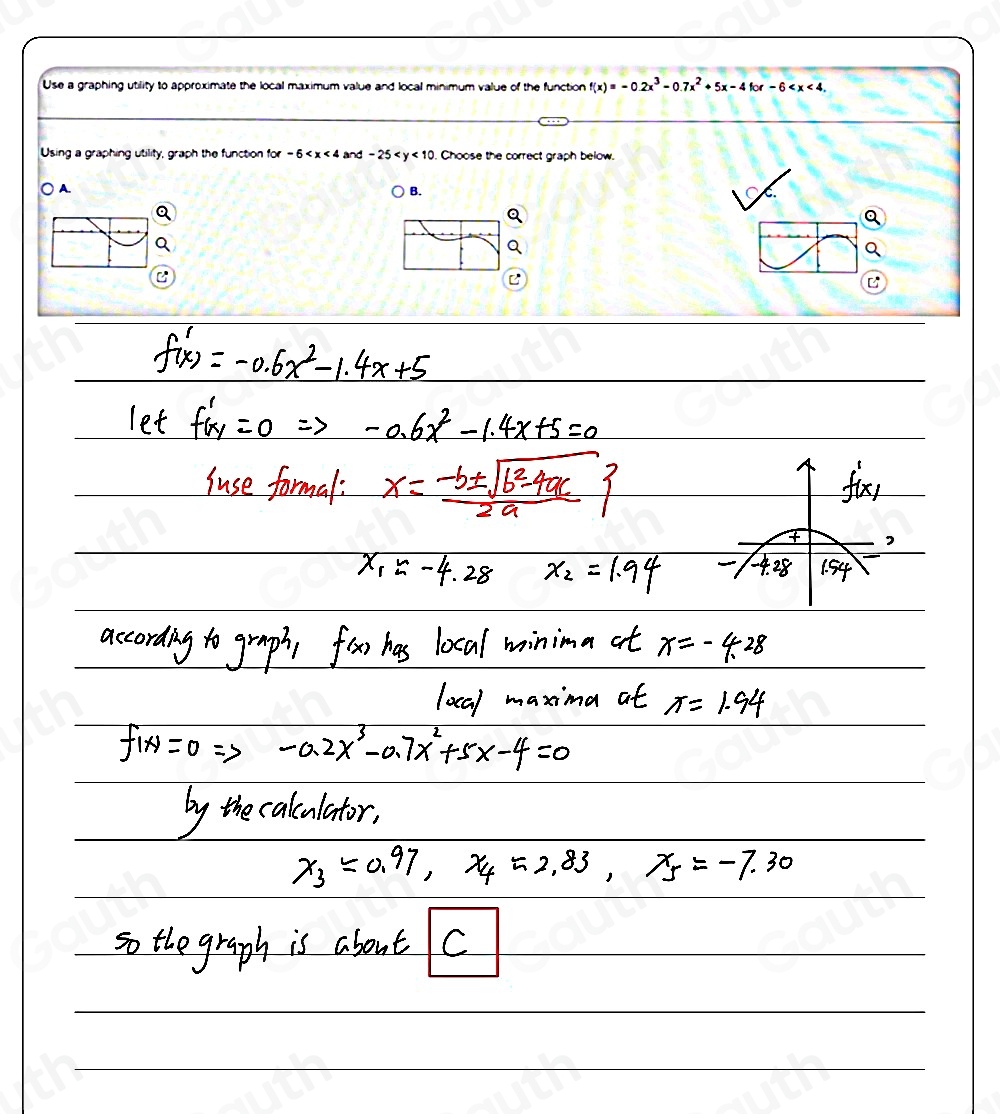 Use a graphing utility to approximate the local maximum value and local minimum value of the function f(x) = - 0.2x³ - 0.7x² + 5x - 4 for - 6 < x < 4.
Using a graphing utility, graph the function for - 6 < x < 4 and - 25 < y < 10. Choose the correct graph below.
A. B. C.
f'(x) = -0.6x² - 1.4x + 5
let f'(x) = 0 => -0.6x² - 1.4x + 5 = 0
{use formal: x = (-b ± √(b² - 4ac)) / 2a}
f'(x)
+
x₁ ≈ -4.28 x₂ = 1.94 - -4.28 1.94 -
according to graph, f(x) has local minima at x = -4.28
local maxima at x = 1.94
f(x) = 0 => -0.2x³ - 0.7x² + 5x - 4 = 0
by the calculator,
x₃ ≈ 0.97, x₄ ≈ 2.83, x₅ ≈ -7.30
so the graph is about C
Gauth